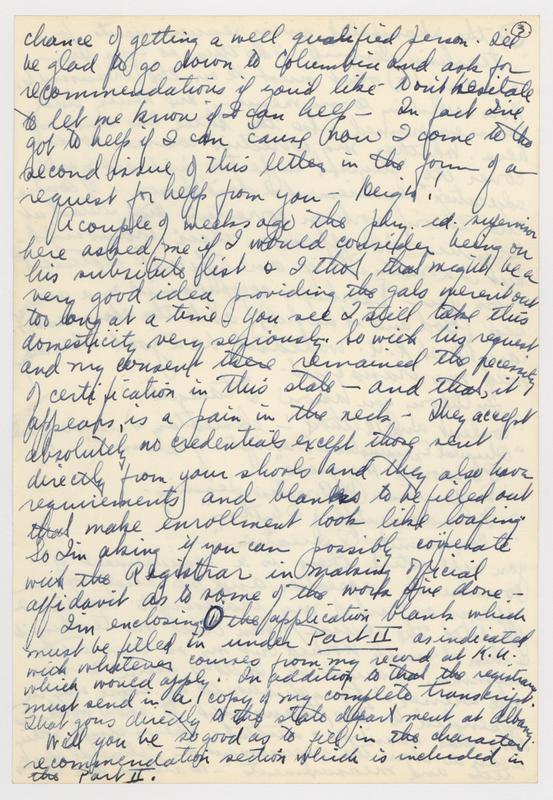 ③
chance of getting a well qualified person. I'll
be glad to go down to Columbia and ask for
recommendations if you'd like. Don't hesitate
to let me know if I can help — In fact I've
got to help if I can 'cause now I come to the
second issue of this letter in the form of a
request for help from you — Heigh!
A couple of weeks ago the phy. ed. supervisor
here asked me if I would consider being on
his subsitute list & I tho't that might be a
very good idea providing the gals weren't out
too long at a time. You see I still take this
domesticity very seriously. So with his request
and my consent there remained the necessity
of certification in this state — and that, it
appears, is a pain in the neck — They accept
absolutely no credentials except those sent
directly from your schools and they also have
requirements and blanks to be filled out
that make enrollment look like loafing.
So I'm asking if you can possibly cooperate
with the Registrar in making official
affidavit as to some of the work I've done. —
I'm enclosing the application blank which
must be filled in under Part II as indicated
with whatever courses from my record at K.U.
which would apply. In addition to that the registrar
must send in a copy of my complete transcript.
That goes directly to the state department at Albany.
Will you be so good as to fill in the character
recommendation section which is included in
the Part II.